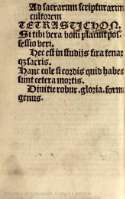 Ad sacrarum scripturarum
cultorem
TETRASTICHON.
Si tibi vera boni placuit pos
sessio veri.
Hec est in studiis fixa tenat
q; sacris.
Hanc cole si cordis quid habes
sunt cetera mortis.
Divitie robur, gloria, forma
genus.